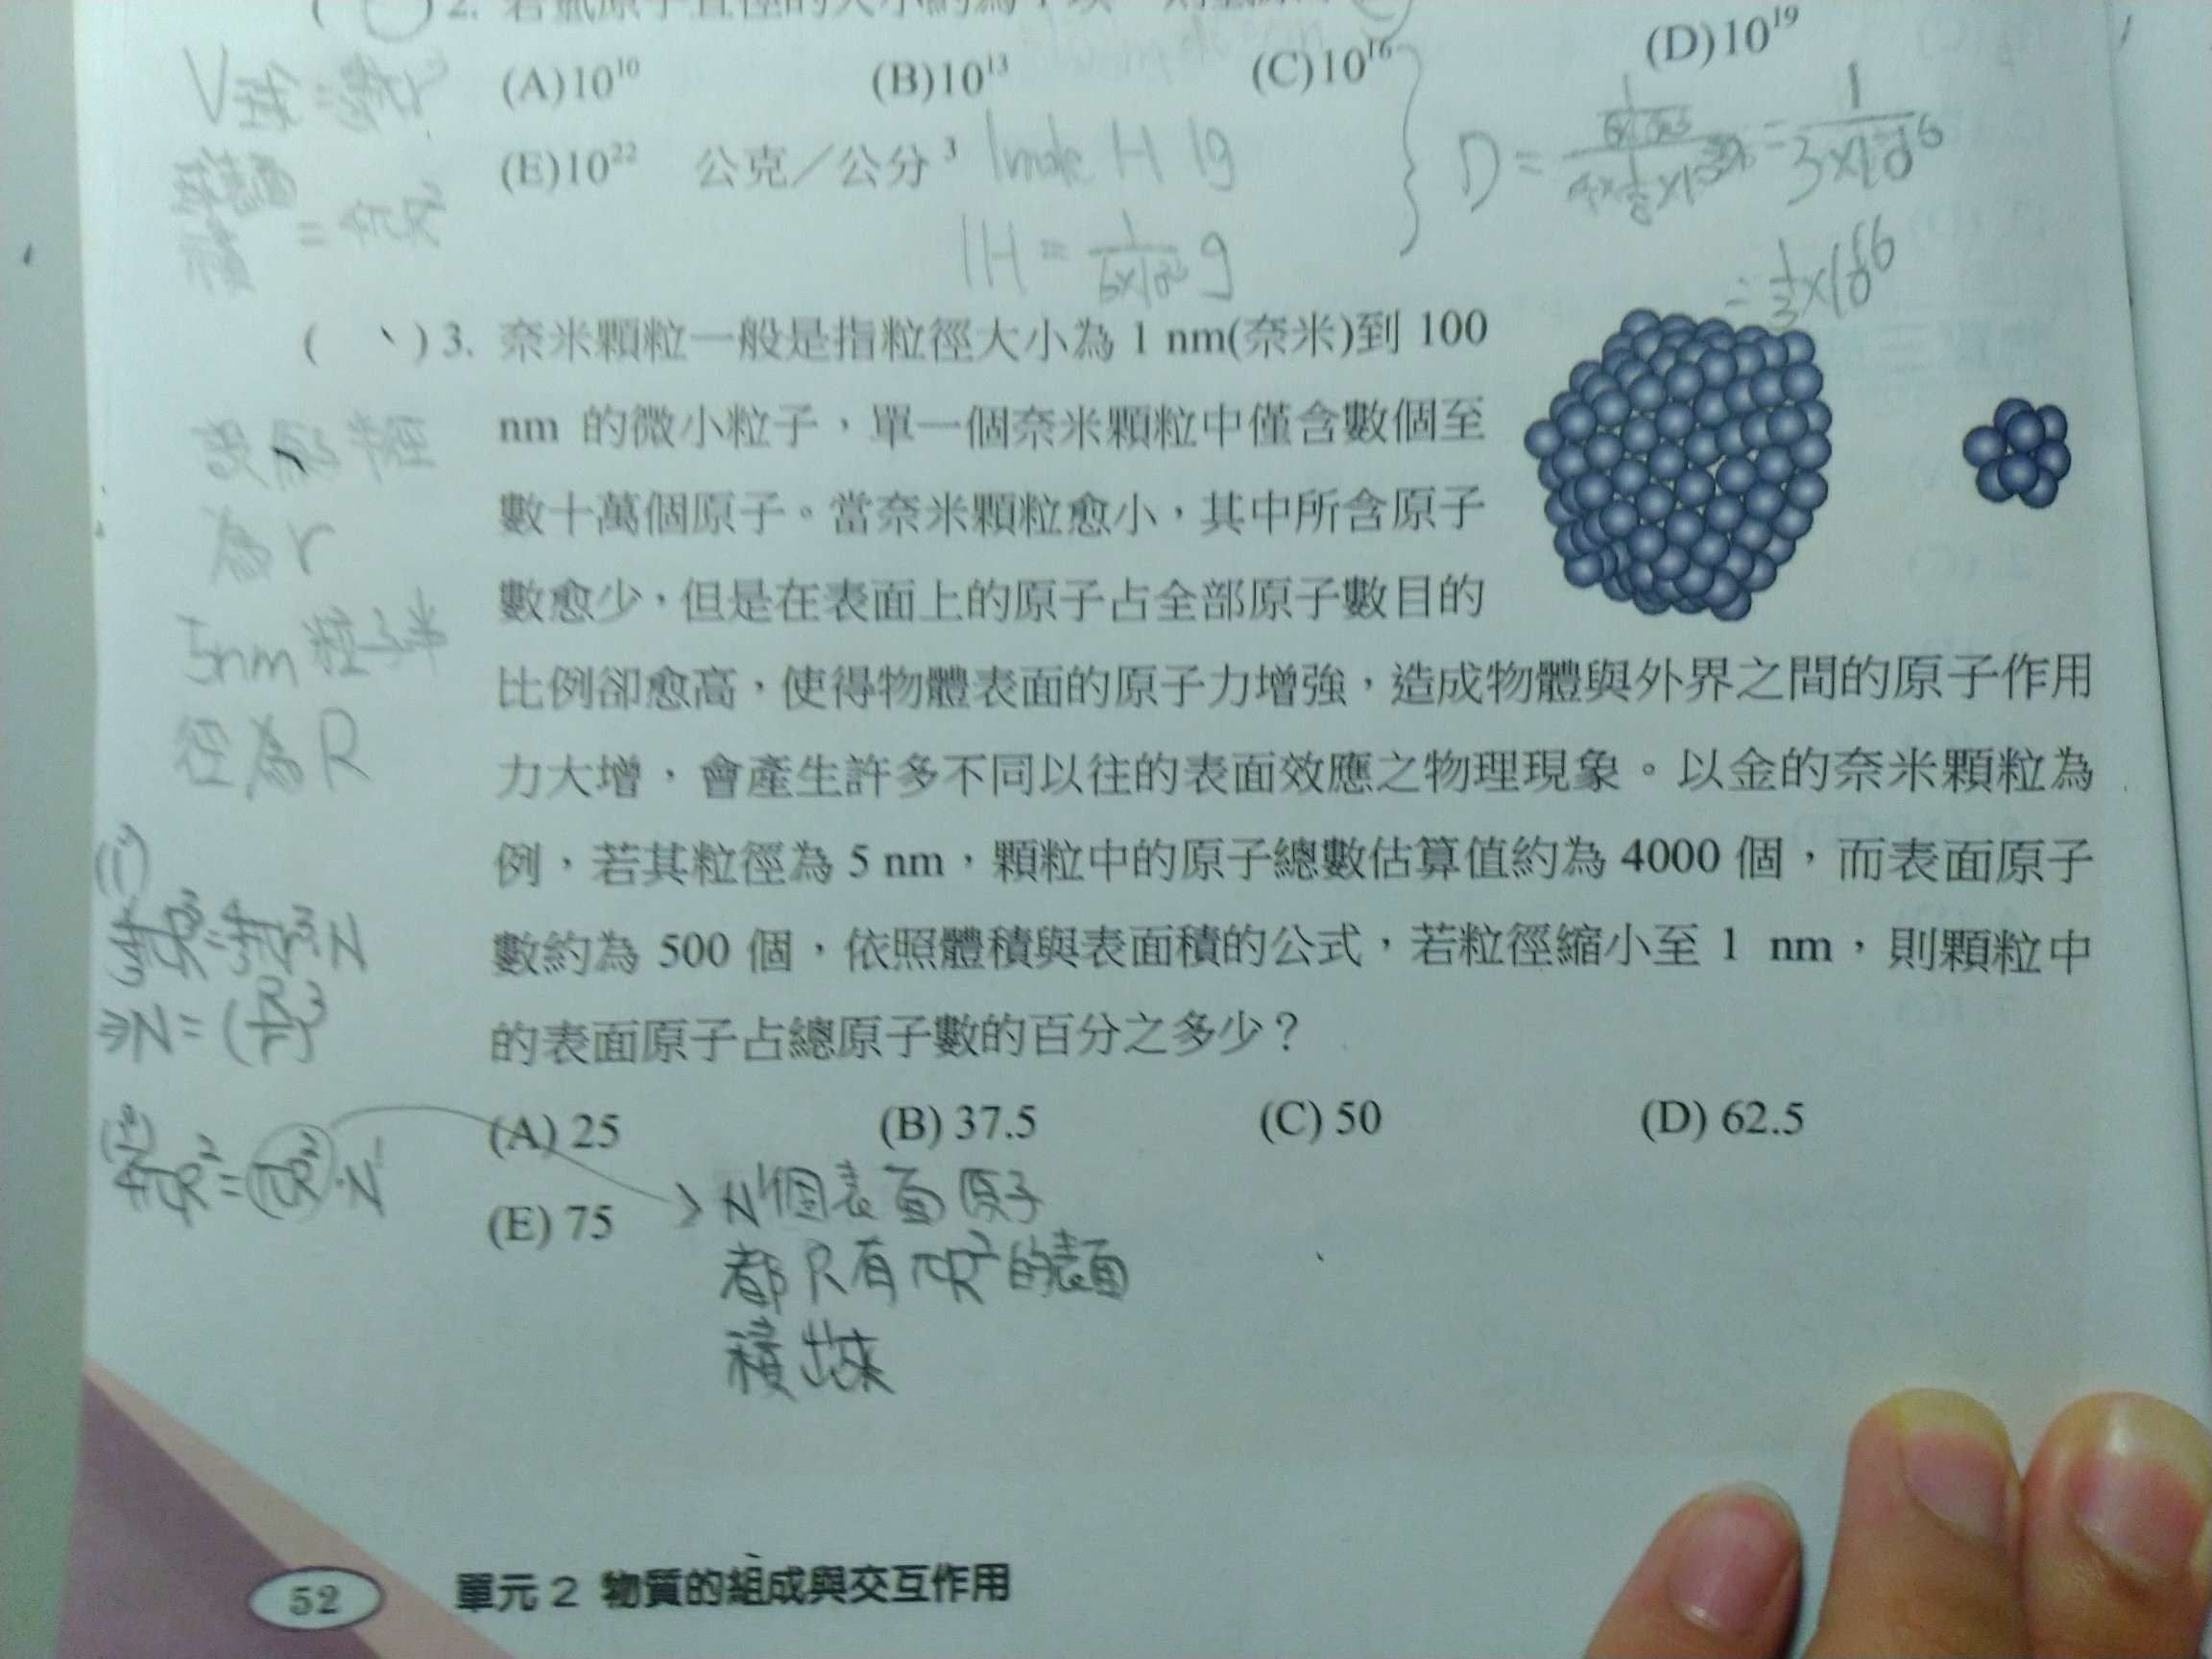 (A)10¹⁰ (B)10¹³ (C)10¹⁶ (D)10¹⁹
(E)10²² 公克／公分³
1mole H 1g
1H = 1/6×10²³ g
V球 =
球表面積 = 4πR²
( )3. 奈米顆粒一般是指粒徑大小為 1 nm(奈米)到 100
nm 的微小粒子，單一個奈米顆粒中僅含數個至
數十萬個原子。當奈米顆粒愈小，其中所含原子
數愈少，但是在表面上的原子占全部原子數目的
比例卻愈高，使得物體表面的原子力增強，造成物體與外界之間的原子作用
力大增，會產生許多不同以往的表面效應之物理現象。以金的奈米顆粒為
例，若其粒徑為 5 nm，顆粒中的原子總數估算值約為 4000 個，而表面原子
數約為 500 個，依照體積與表面積的公式，若粒徑縮小至 1 nm，則顆粒中
的表面原子占總原子數的百分之多少？
(A) 25 (B) 37.5 (C) 50 (D) 62.5
(E) 75
半徑
為 r
5nm 粒子半
徑為 R
⇒N = (R/r)³
4πR² = πR²·N'
N'個表面原子
都只有πR²的表面
積出來
52 單元 2 物質的組成與交互作用